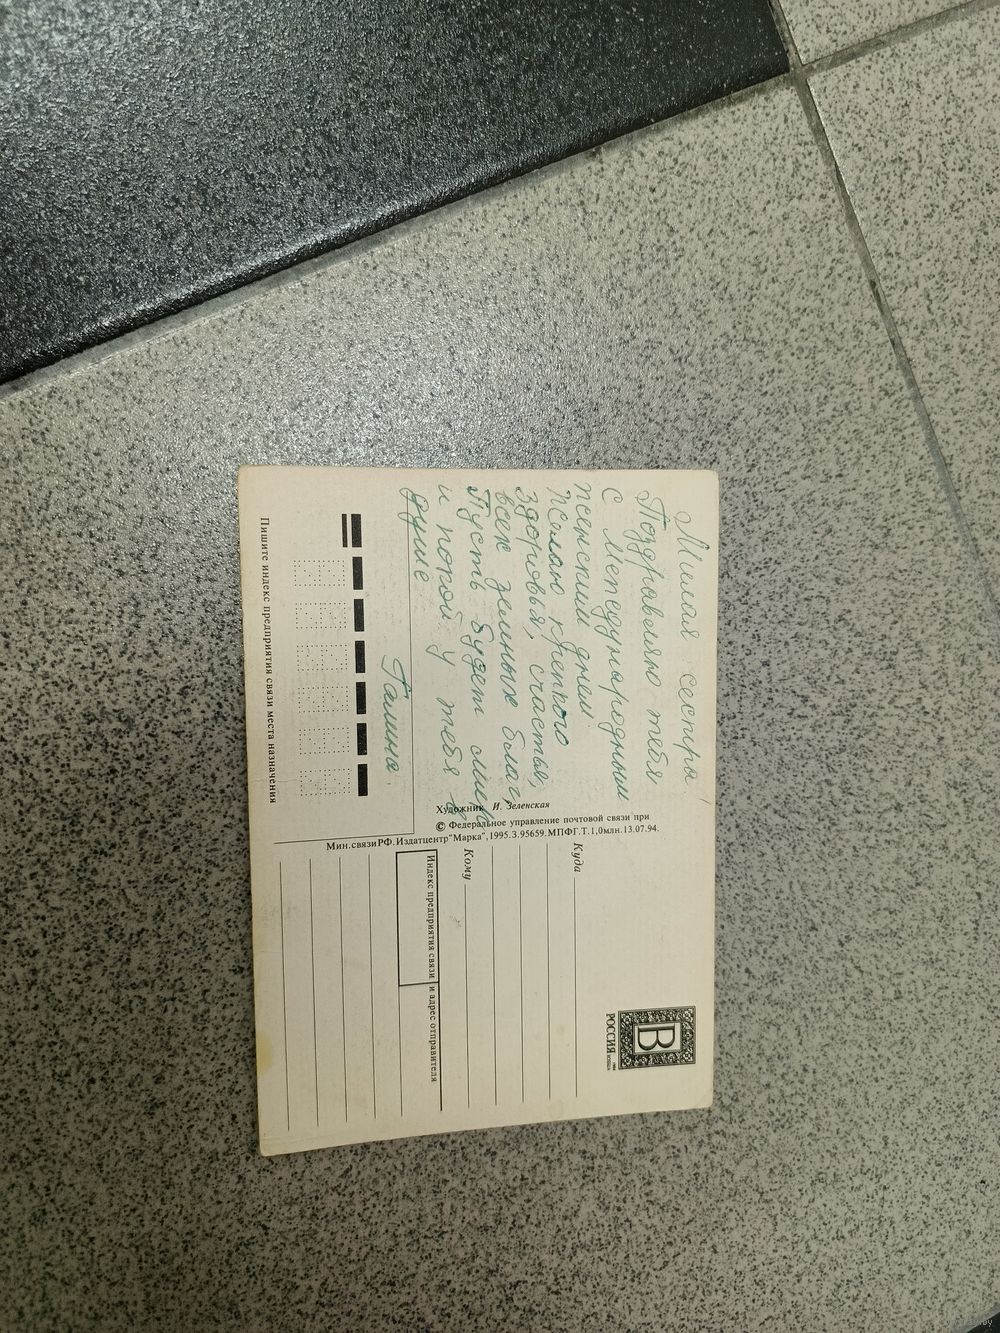 Милая сестра!
Поздравляю тебя
с Международным
женским днем!
Желаю крепкого
здоровья, счастья,
всех земных благ,
Пусть будет мир
и покой у тебя в
душе
Галина
Пишите индекс предприятия связи места назначения
Художник И. Зеленская
© Федеральное управление почтовой связи при
Мин.связи РФ. Издатцентр "Марка", 1995. З.95659. МПФГ. Т.1,0млн. 13.07.94.
В
РОССИЯ
Куда
Кому
Индекс предприятия связи и адрес отправителя